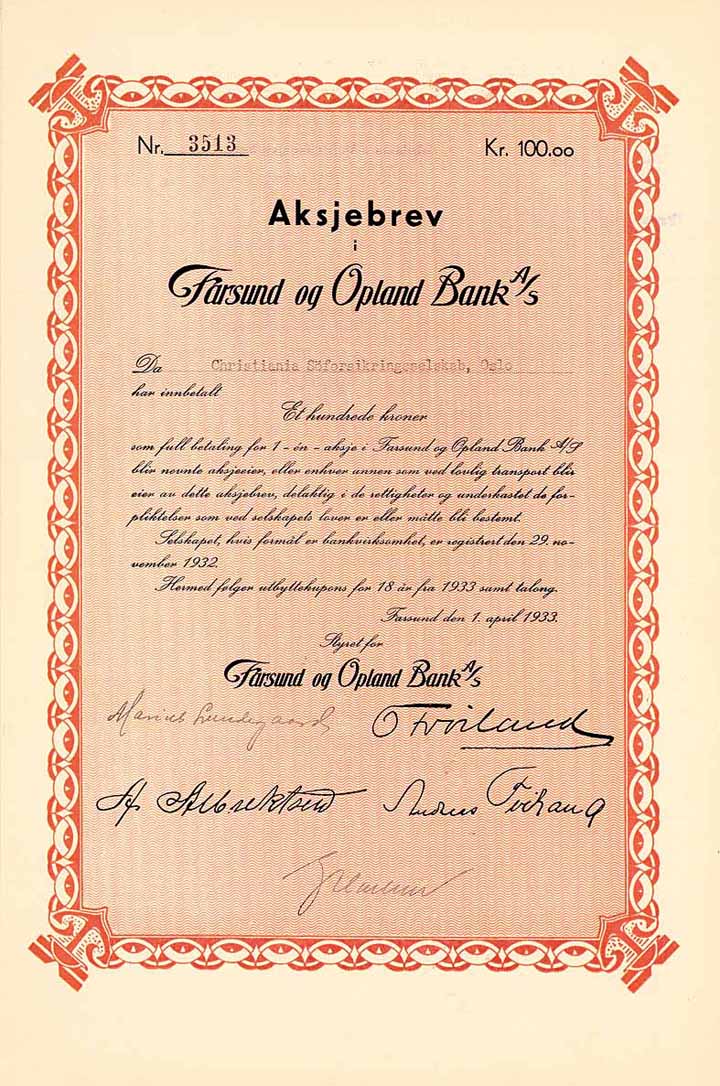 Nr. 3513 Kr. 100.00
Aksjebrev
i
Farsund og Opland Bank A/S
Da Christiania Söforsikringsselskab, Oslo
har innbetalt
Et hundrede kroner
som full betaling for 1 - én - aksje i Farsund og Opland Bank A/S
blir nevnte aksjeeier, eller enhver annen som ved lovlig transport blir
eier av dette aksjebrev, delaktig i de rettigheter og underkastet de for-
pliktelser som ved selskapets lover er eller måtte bli bestemt.
Selskapet, hvis formål er bankvirksomhet, er registrert den 29. no-
vember 1932.
Hermed følger utbyttekupons for 18 år fra 1933 samt talong.
Farsund den 1. april 1933.
Styret for
Farsund og Opland Bank A/S
Marius Lundegaard
Albrektsen Andreas